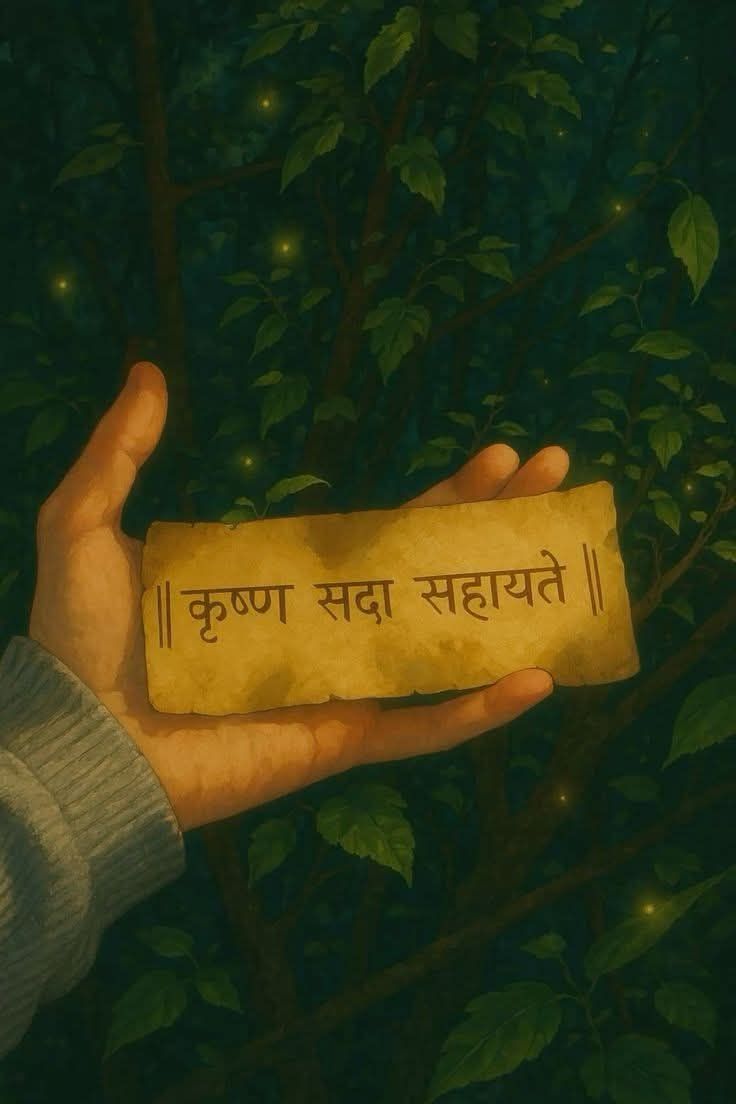 || कृष्ण सदा सहायते ||